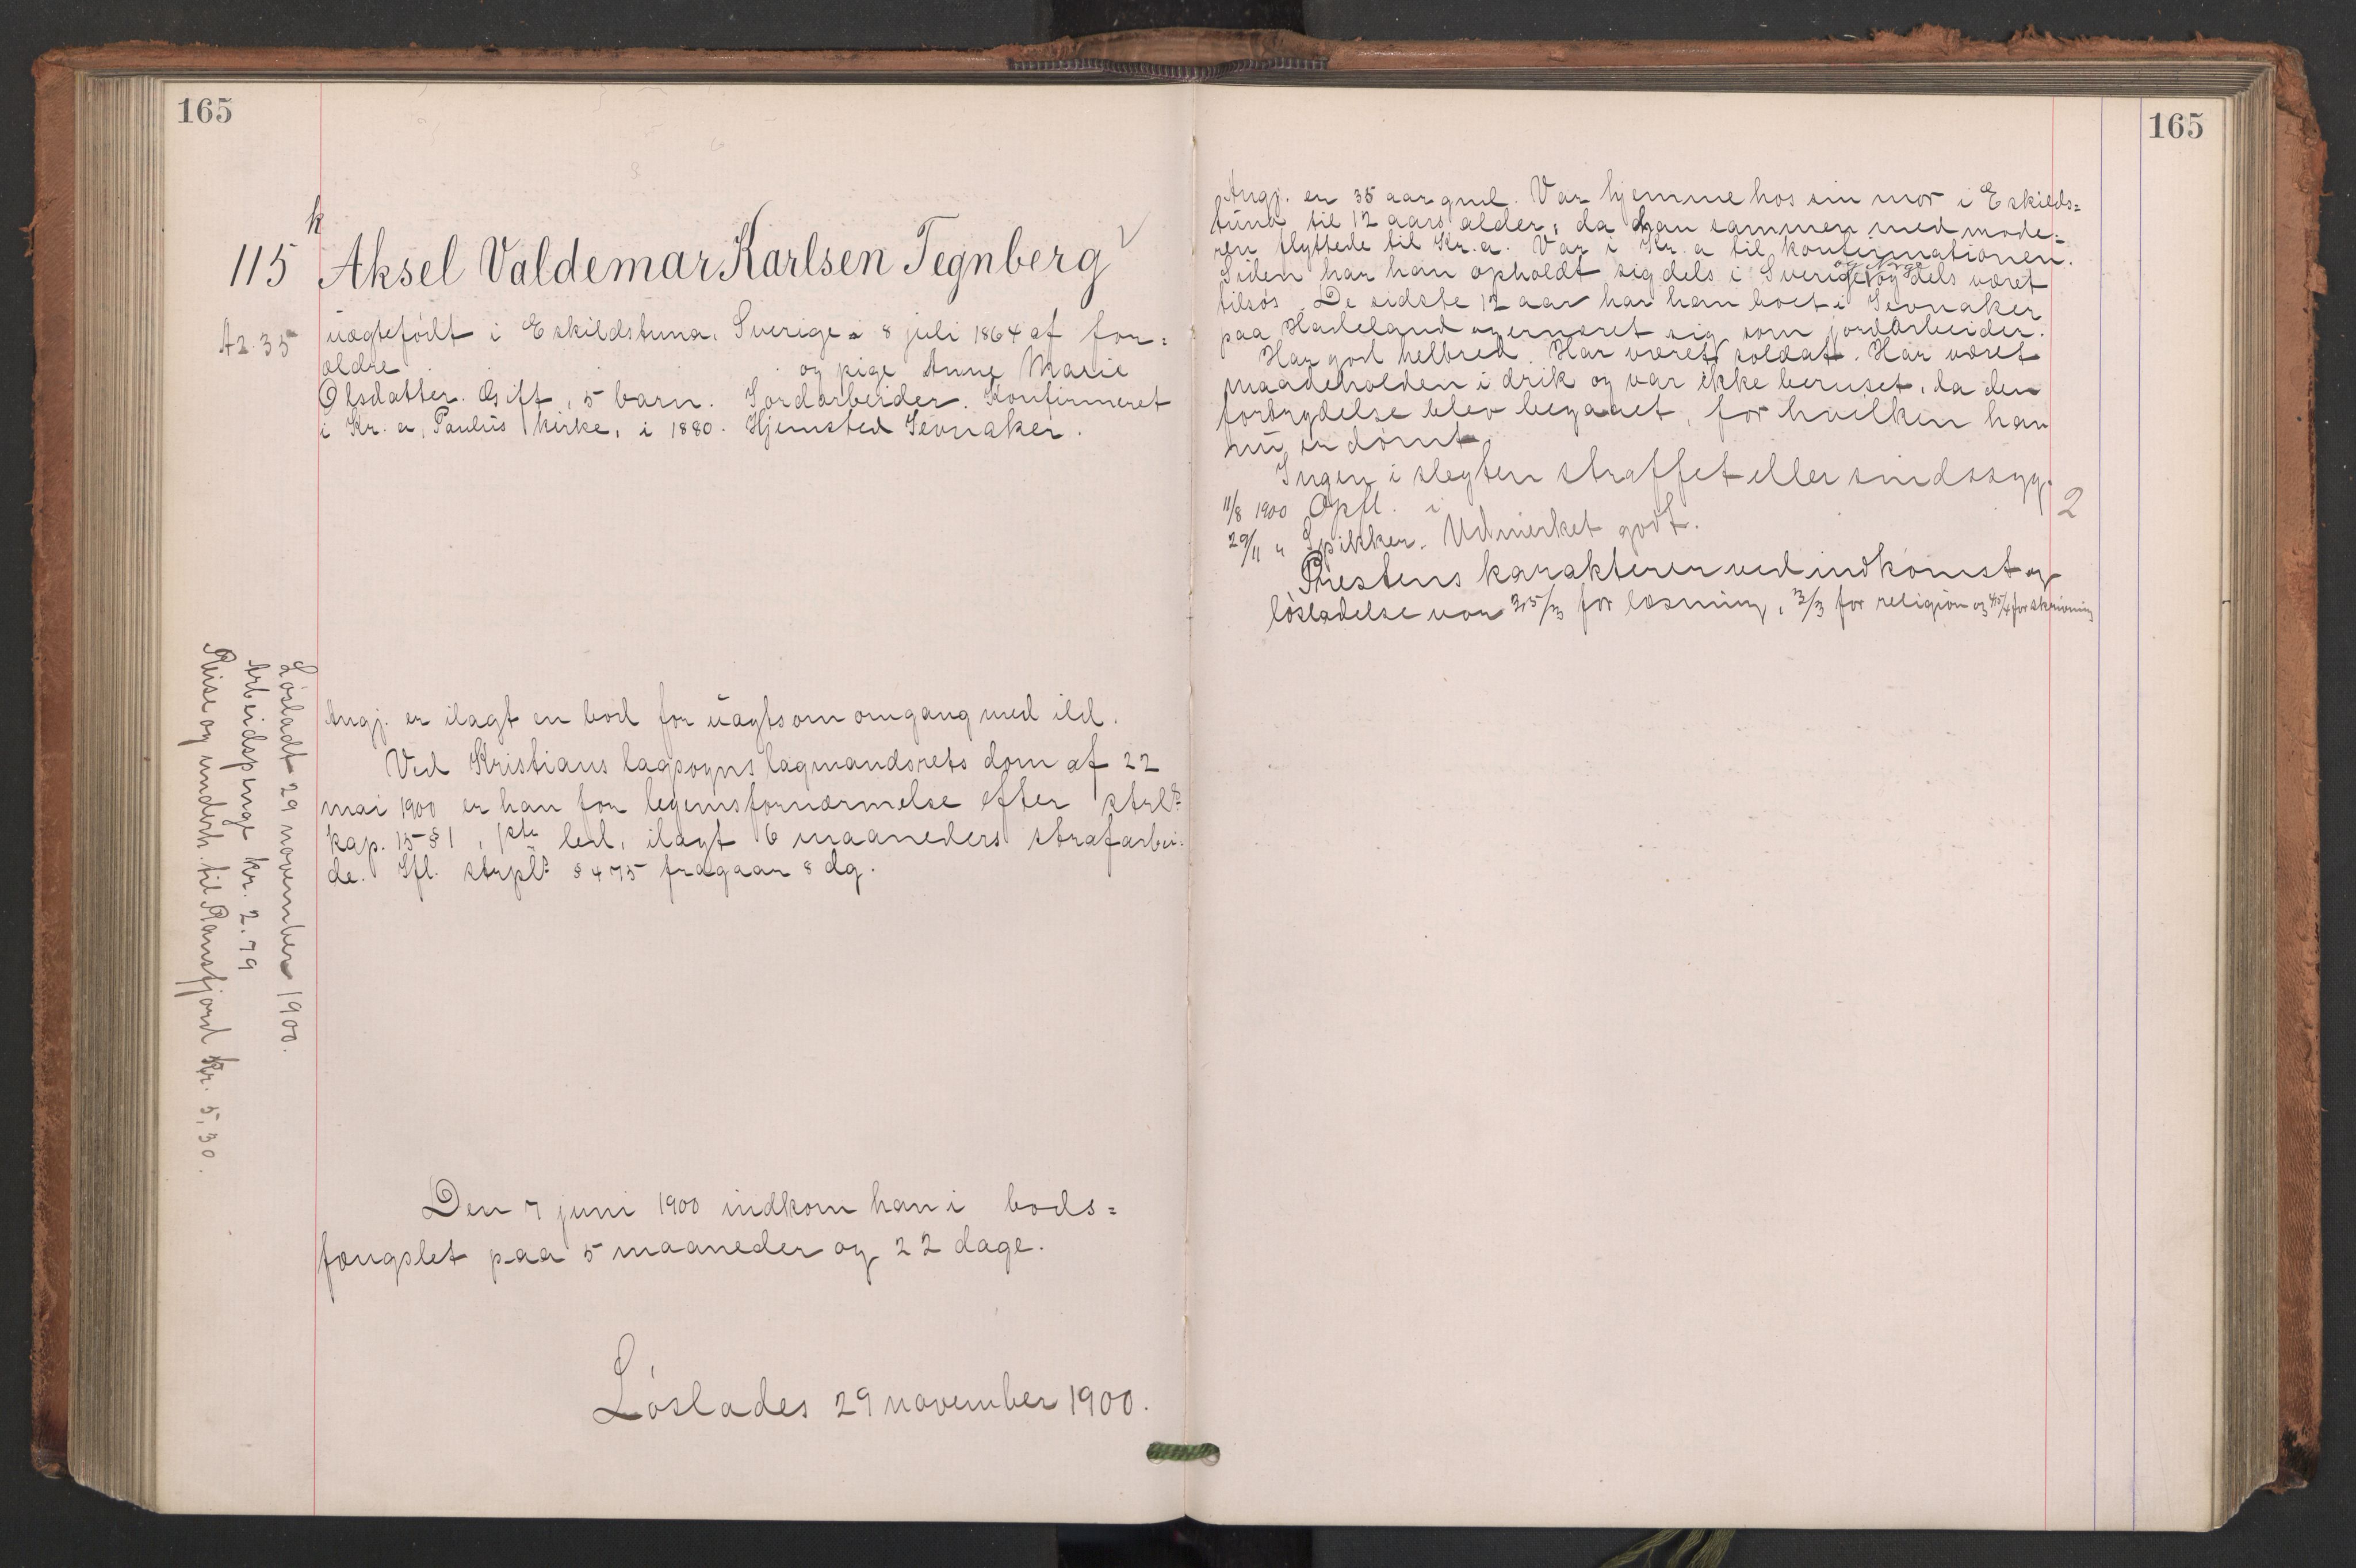 165
k
115 Aksel Valdemar Karlsen Tegnberg
A2.35
uægtefödt i Eskildstuna, Sverige 8 juli 1864 af for=
ældre og pige Anne Marie
Olsdatter. Gift, 5 barn. Jordarbeider. Konfirmeret
i Kr.a, Paulus kirke, i 1880. Hjemsted Jevnaker.
Angj. er ilagt en bod for uagtsom omgang med ild.
Ved Kristians lagsogns lagmandsrets dom af 22
mai 1900 er han for legemsfornærmelse efter strl.s
kap. 15 § 1, 1ste led, ilagt 6 maaneders strafarbei-
de. Ifl. strpl.s § 475 fragaar 8 dg.
Den 7 juni 1900 indkom han i bods=
fængslet paa 5 maaneder og 22 dage.
Löslades 29 november 1900.
Lösladt 29 november 1900.
Arbeidspenge kr. 2.79
Reise og underh. til Ransfjord kr. 5,30.
165
Angj. er 35 aar gml. Var hjemme hos sin mor i Eskilds=
tuna til 12 aars alder, da han sammen med mode=
ren flyttede til Kr.a. Var i Kr.a til konfirmationen.
Siden har han opholdt sig dels i Sverige og Norge og dels været
tilsös. De sidste 12 aar har han boet i Jevnaker
paa Hadeland og ernæret sig som jordarbeider.
Har god helbred. Har været soldat. Har været
maadeholden i drik og var ikke beruset, da den
forbrydelse blev begaaet, for hvilken han
nu er dömt.
Ingen i slegten straffet eller sindssyg.
11/8 1900 Opfl. i 2
29/11 " Spikker. Udmerket godt.
Prestens karakterer ved indkomst og
lösladelse var 3,5/3 for læsning, 3/3 for religion og 4,5/4 for skrivning